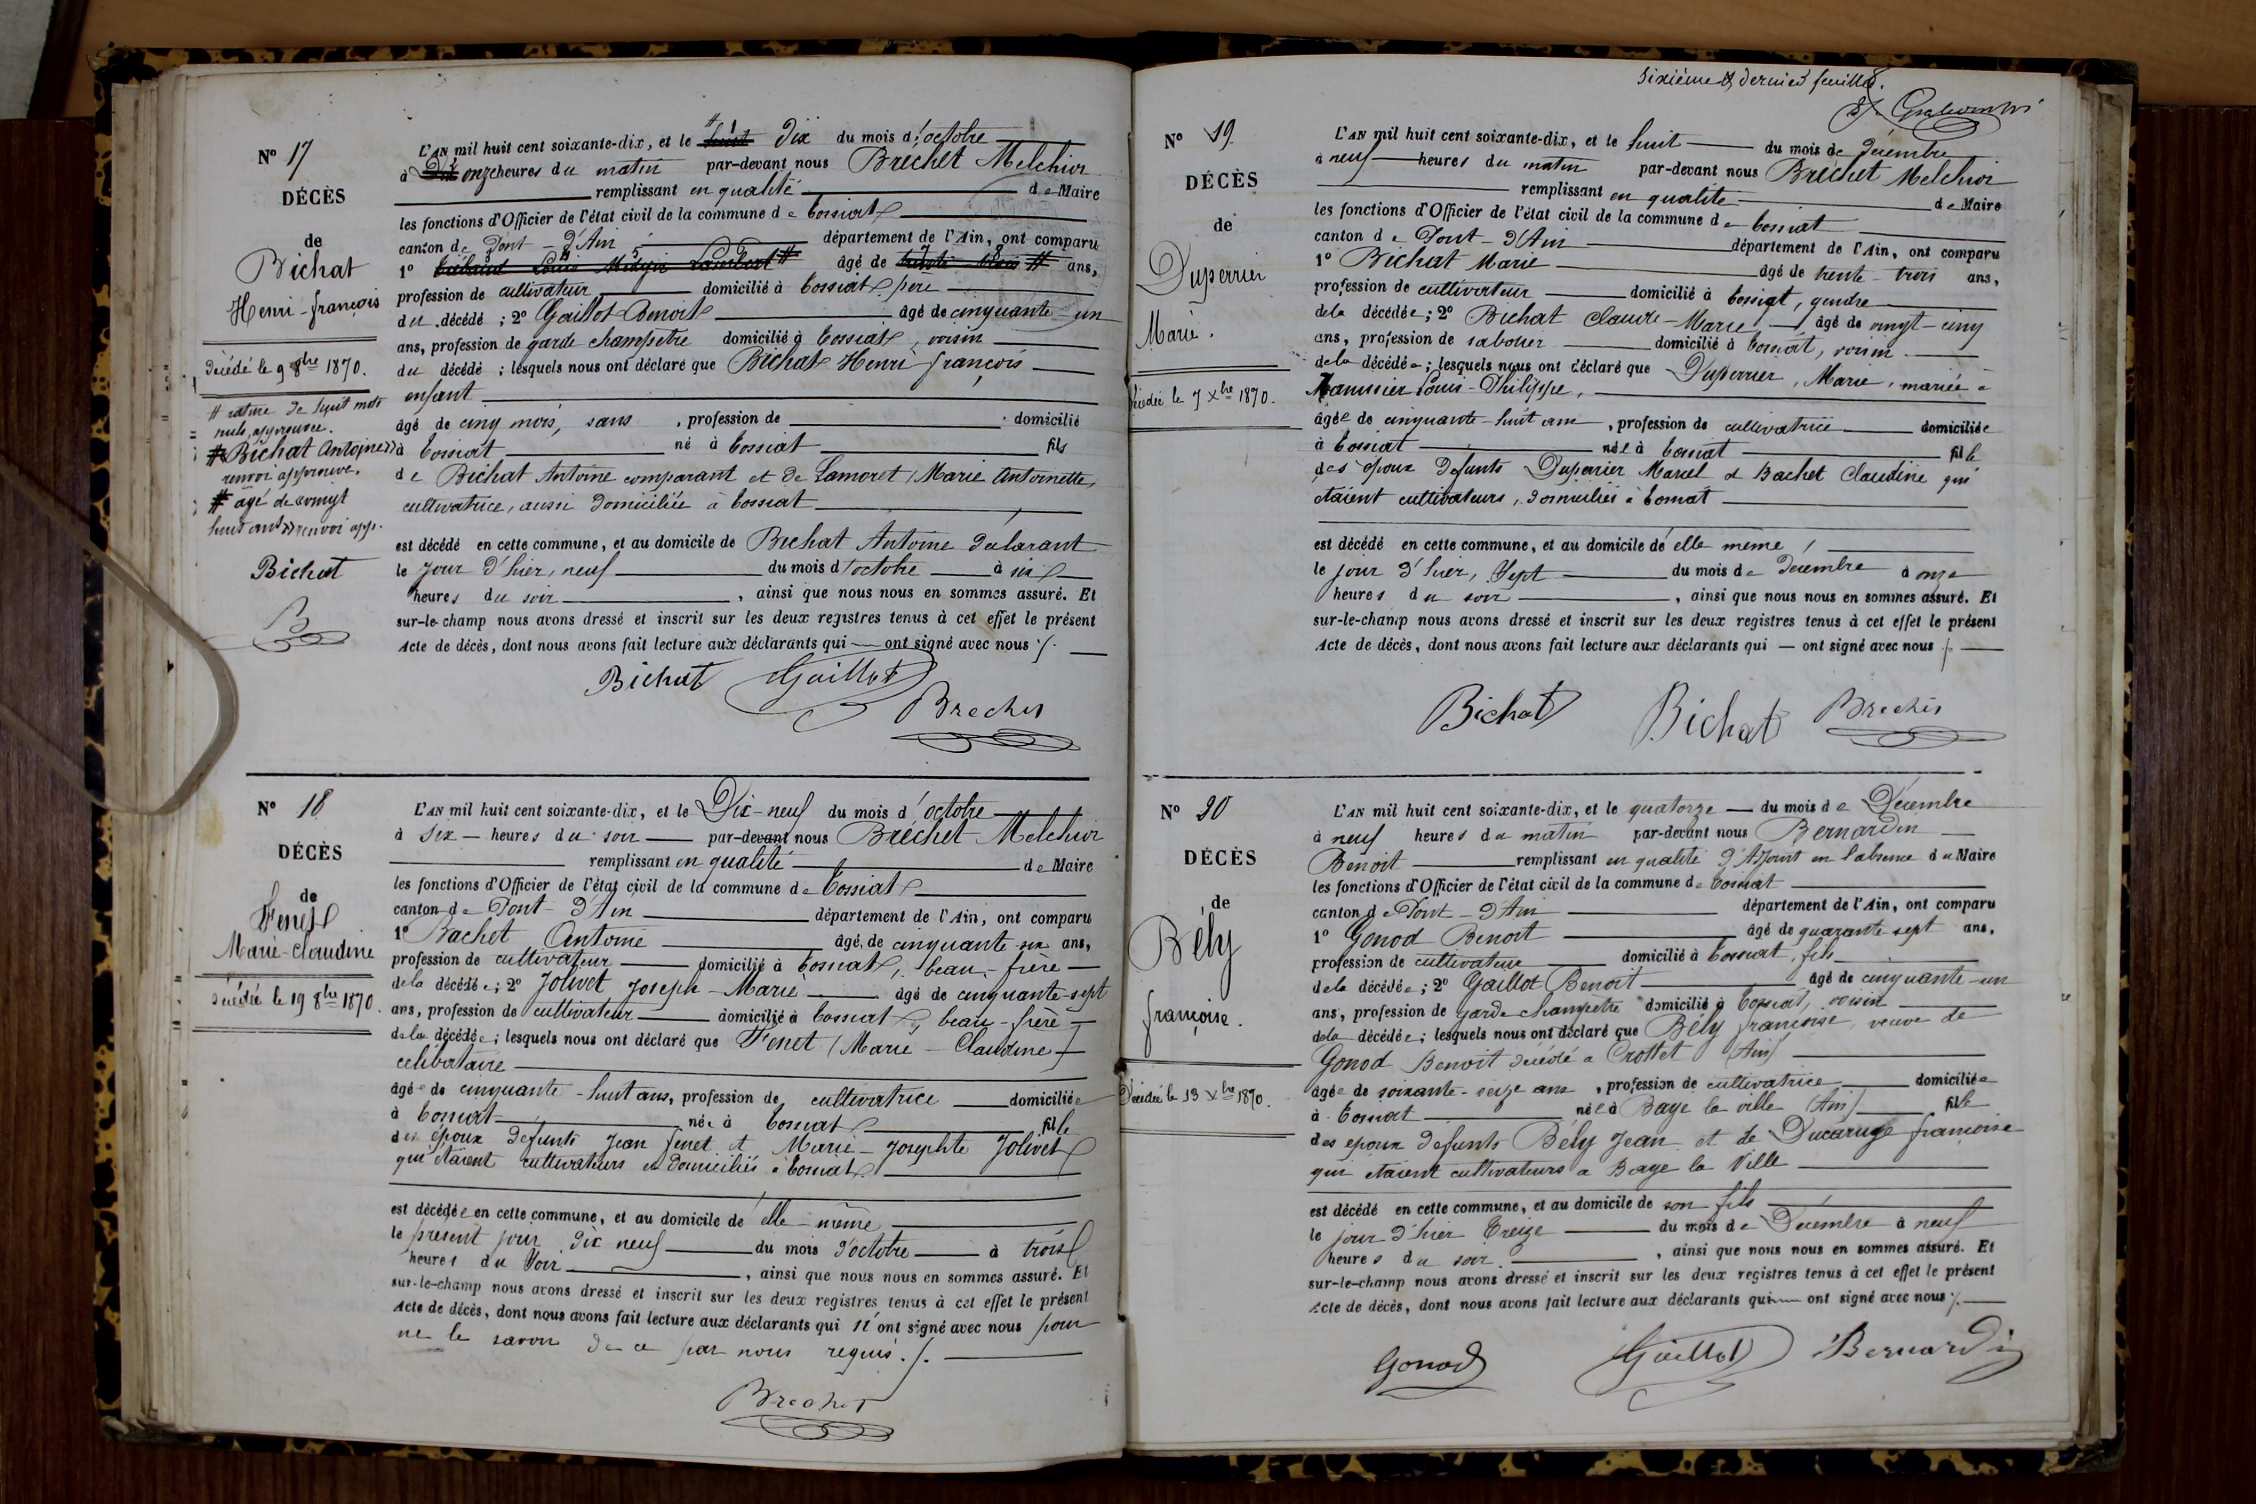 N° 17
DÉCÈS
de
Bichat
Henri-françois
décédé le 9 8bre 1870.
# rature de huit mots
nuls, approuvée.
# Bichat Antoine »
renvoi approuvé.
# agé de vingt
huit ans » renvoi app.
Bichat
B
L'AN mil huit cent soixante-dix, et le huit dix du mois d'octobre
à onze heures du matin par-devant nous Bréchet Melchior
remplissant en qualité de Maire
les fonctions d'Officier de l'état civil de la commune de Cossiat
canton de Pont-d'Ain département de l'Ain, ont comparu
1° # âgé de # ans,
profession de cultivateur domicilié à Cossiat, père
du décédé ; 2° Gaillot Benoit âgé de cinquante-un
ans, profession de garde champêtre domicilié à Cossiat, voisin
du décédé ; lesquels nous ont déclaré que Bichat Henri françois
enfant
âgé de cinq mois, sans , profession de domicilié
à Cossiat né à Cossiat fils
de Bichat Antoine comparant et de Lamoret Marie Antoinette,
cultivatrice, aussi domiciliée à Cossiat
est décédé en cette commune, et au domicile de Bichat Antoine déclarant
le jour d'hier, neuf du mois d'octobre à six
heures du soir , ainsi que nous nous en sommes assuré. Et
sur-le-champ nous avons dressé et inscrit sur les deux registres tenus à cet effet le présent
Acte de décès, dont nous avons fait lecture aux déclarants qui ont signé avec nous ./.
Bichat Gaillot
Brechet
N° 18
DÉCÈS
de
Fenet
Marie-Claudine
décédée le 19 8bre 1870.
L'AN mil huit cent soixante-dix, et le Dix-neuf du mois d'octobre
à six heures du soir par-devant nous Bréchet Melchior
remplissant en qualité de Maire
les fonctions d'Officier de l'état civil de la commune de Cossiat
canton de Pont-d'Ain département de l'Ain, ont comparu
1° Bachet Antoine âgé de cinquante six ans,
profession de cultivateur domicilié à Cossiat, beau-frère
de la décédée ; 2° Jolivet Joseph-Marie âgé de cinquante-sept
ans, profession de cultivateur domicilié à Cossiat, beau-frère
de la décédée ; lesquels nous ont déclaré que Fenet (Marie-Claudine)
célibataire
âgée de cinquante-huit ans, profession de cultivatrice domiciliée
à Cossiat née à Cossiat fille
des époux défunts Jean fenet et Marie-Josephte Jolivet
qui étaient cultivateurs et domiciliés à Cossiat
est décédée en cette commune, et au domicile de elle-même
le présent jour dix neuf du mois d'octobre à trois
heures du soir , ainsi que nous nous en sommes assuré. Et
sur-le-champ nous avons dressé et inscrit sur les deux registres tenus à cet effet le présent
Acte de décès, dont nous avons fait lecture aux déclarants qui n'ont signé avec nous pour
ne le savoir de ce par nous requis ./.
Brechet
Sixième & dernier feuillet.
N° 19.
DÉCÈS
de
Duperrier
Marie.
Décédée le 7 Xbre 1870.
L'AN mil huit cent soixante-dix, et le huit du mois de décembre
à neuf heures du matin par-devant nous Bréchet Melchior
remplissant en qualité de Maire
les fonctions d'Officier de l'état civil de la commune de Cossiat
canton de Pont-d'Ain département de l'Ain, ont comparu
1° Bichat Marie âgé de trente-trois ans,
profession de cultivateur domicilié à Cossiat, gendre
de la décédée ; 2° Bichat Claude-Marie âgé de vingt-cinq
ans, profession de sabotier domicilié à Cossiat, voisin
de la décédée ; lesquels nous ont déclaré que Duperrier, Marie, mariée à
Louis-Philippe,
âgée de cinquante-huit ans , profession de cultivatrice domiciliée
à Cossiat née à Cossiat fille
des époux défunts Duperrier Marcel et Bachet Claudine qui
étaient cultivateurs, domiciliés à Cossiat
est décédé en cette commune, et au domicile de elle même
le jour d'hier, sept du mois de décembre à onze
heures du soir , ainsi que nous nous en sommes assuré. Et
sur-le-champ nous avons dressé et inscrit sur les deux registres tenus à cet effet le présent
Acte de décès, dont nous avons fait lecture aux déclarants qui ont signé avec nous ./.
Bichat Bichat Brechet
N° 20
DÉCÈS
de
Bély
françoise.
Décédée le 13 Xbre 1870.
L'AN mil huit cent soixante-dix, et le quatorze du mois de Décembre
à neuf heures du matin par-devant nous Bernardin
Benoit remplissant en qualité d'Adjoint en l'absence du Maire
les fonctions d'Officier de l'état civil de la commune de Cossiat
canton de Pont-d'Ain département de l'Ain, ont comparu
1° Gonod Benoit âgé de quarante sept ans,
profession de cultivateur domicilié à Cossiat, fils
de la décédée ; 2° Gaillot Benoit âgé de cinquante-un
ans, profession de garde champêtre domicilié à Cossiat, voisin
de la décédée ; lesquels nous ont déclaré que Bély françoise, veuve de
Gonod Benoit décédé à Crottet (Ain)
âgée de soixante-seize ans , profession de cultivatrice domiciliée
à Cossiat née à Bage la ville (Ain) fille
des époux défunts Bély Jean et de Ducaruge françoise
qui étaient cultivateurs à Bage la Ville
est décédé en cette commune, et au domicile de son fils
le jour d'hier treize du mois de Décembre à neuf
heures du soir , ainsi que nous nous en sommes assuré. Et
sur-le-champ nous avons dressé et inscrit sur les deux registres tenus à cet effet le présent
Acte de décès, dont nous avons fait lecture aux déclarants qui ont signé avec nous ./.
Gonod Gaillot Bernardin